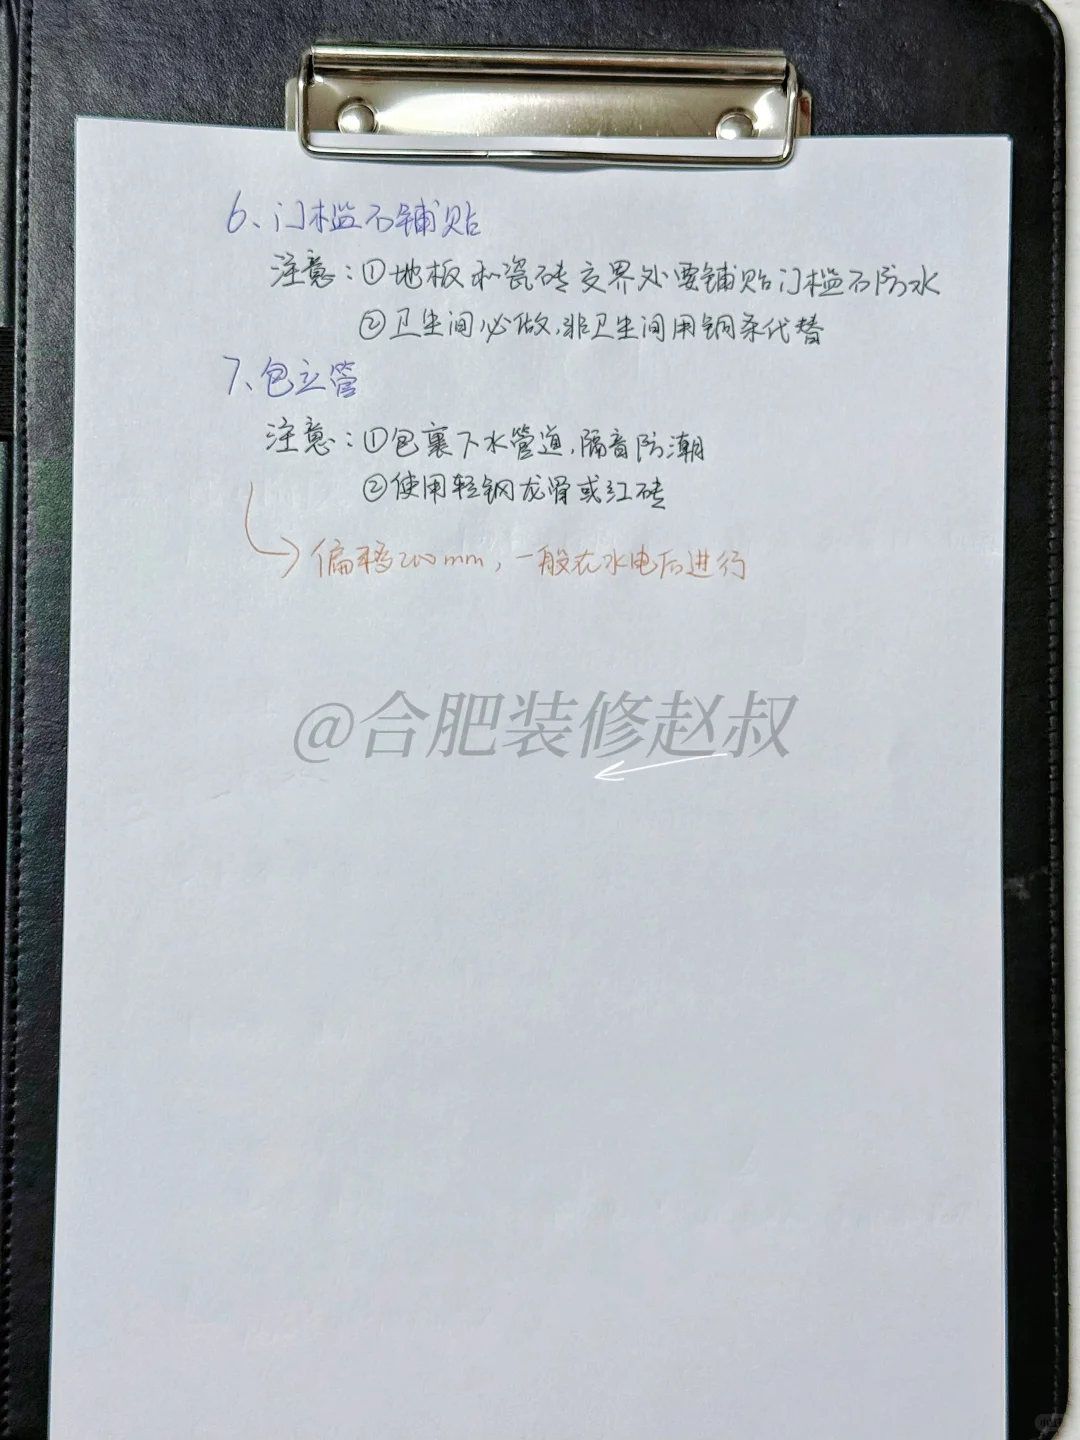 6、门槛石铺贴
注意：①地板和瓷砖交界处要铺贴门槛石防水
②卫生间必做，非卫生间用铜条代替
7、包立管
注意：①包裹下水管道，隔音防潮
②使用轻钢龙骨或红砖
偏移200mm，一般在水电后进行
@合肥装修赵叔